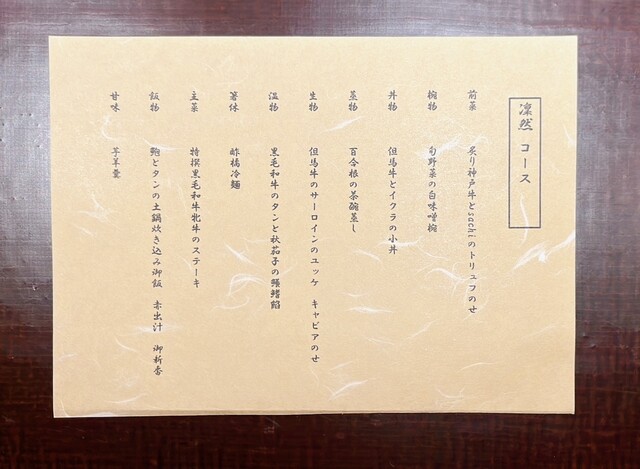 凜然 コース
前菜 炙り神戸牛とsachiのトリュフのせ
椀物 旬野菜の白味噌椀
丼物 但馬牛とイクラの小丼
蒸物 百合根の茶碗蒸し
生物 但馬牛のサーロインのユッケ キャビアのせ
温物 黒毛和牛のタンと秋茄子の鱶鰭餡
箸休 酢橘冷麺
主菜 特撰黒毛和牛牝牛のステーキ
飯物 鮑とタンの土鍋炊き込み御飯 赤出汁 御新香
甘味 芋羊羹